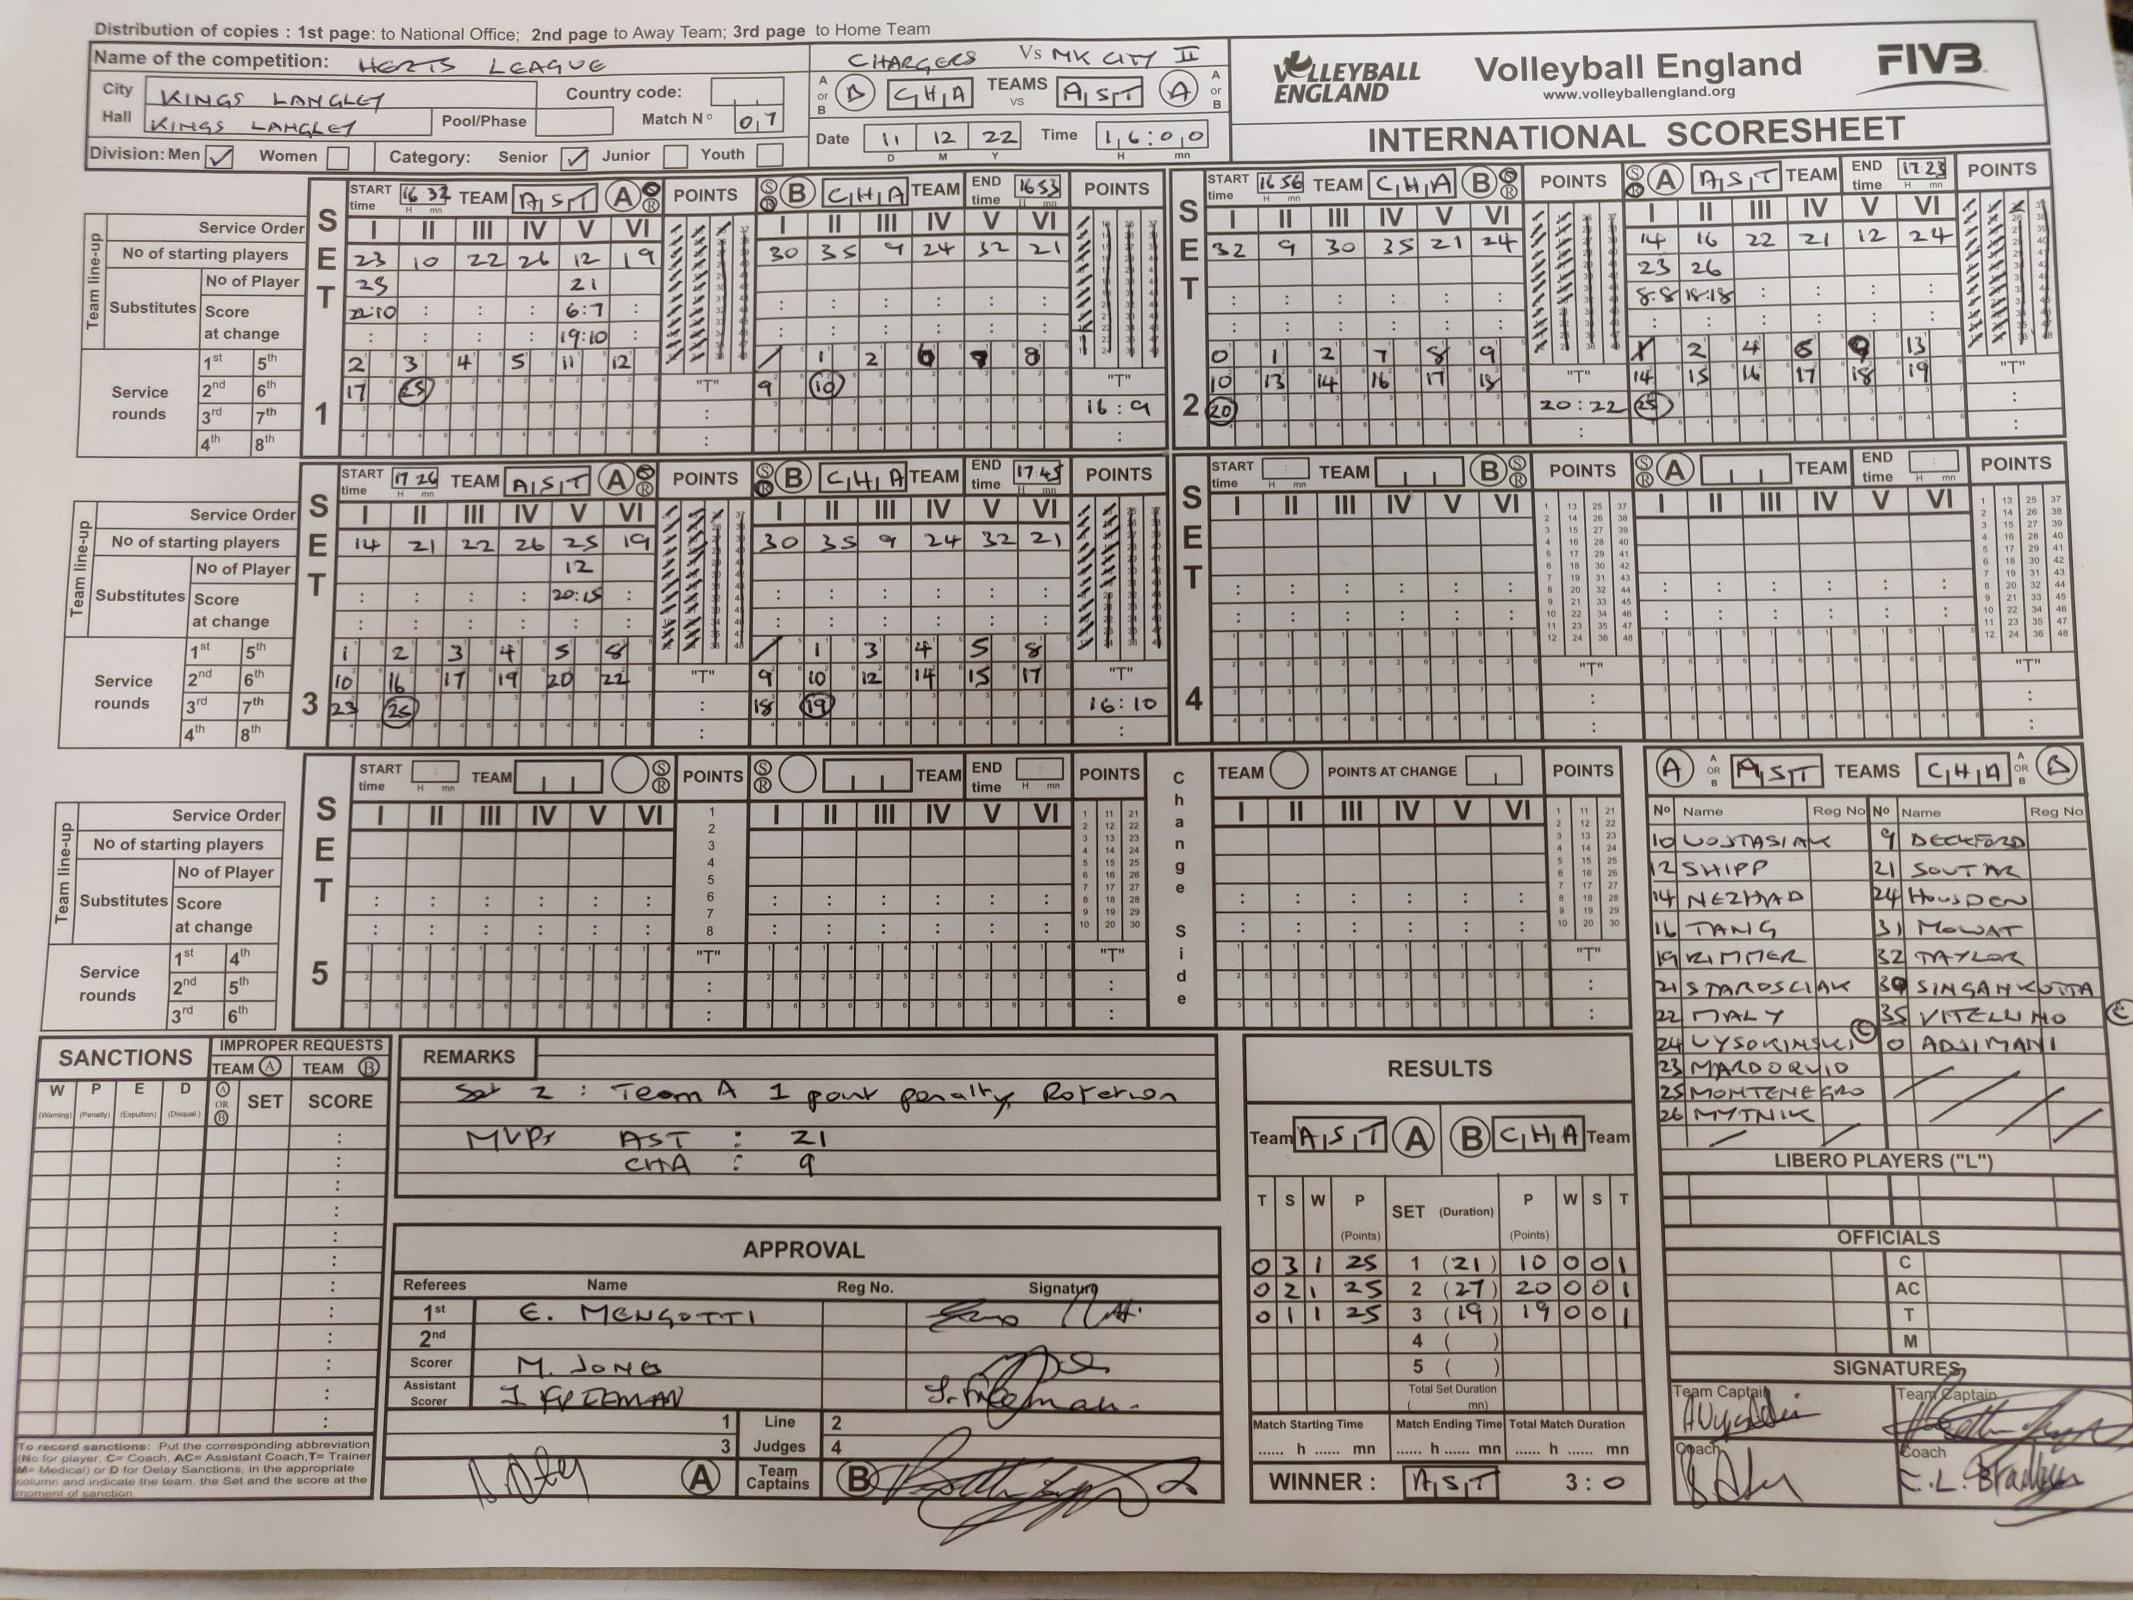 Distribution of copies : 1st page: to National Office; 2nd page to Away Team; 3rd page to Home Team
Name of the competition: HERTS LEAGUE
City KINGS LANGLEY Country code:
Hall KINGS LANGLEY Pool/Phase Match Nº 07
Division: Men ✓ Women Category: Senior ✓ Junior Youth
CHARGERS Vs MK CITY II
A or B B CHA TEAMS vs AST A A or B
Date 11 12 22 Time 16:00
D M Y H mn
VOLLEYBALL ENGLAND
Volleyball England
www.volleyballengland.org
FIVB
INTERNATIONAL SCORESHEET
SET 1
START time 16 32 TEAM AST A S R POINTS S R B CHA TEAM END time 16 53 POINTS
Service Order I II III IV V VI I II III IV V VI
Team line-up
No of starting players 23 10 22 26 12 19 30 35 9 24 32 21
Substitutes No of Player 25 21
Score at change 22:10 6:7
19:10
Service rounds
1st 5th 2 3 4 5 11 12 / 1 2 6 7 8
2nd 6th 17 25 "T" 9 10 "T"
3rd 7th 16:9
4th 8th
SET 2
START time 16 56 TEAM CHA B S R POINTS S R A AST TEAM END time 17 23 POINTS
I II III IV V VI I II III IV V VI
32 9 30 35 21 24 14 16 22 21 12 24
23 26
8:8 18:18
0 1 2 7 8 9 X 2 4 6 9 13
10 13 14 16 17 18 "T" 14 15 16 17 18 19 "T"
20 20:22 25
SET 3
START time 17 26 TEAM AST A S R POINTS S R B CHA TEAM END time 17:45 POINTS
Service Order I II III IV V VI I II III IV V VI
Team line-up
No of starting players 14 21 22 26 25 19 30 35 9 24 32 21
Substitutes No of Player 12
Score at change 20:15
Service rounds
1st 5th 1 2 3 4 5 8 / 1 3 4 5 8
2nd 6th 10 16 17 19 20 22 "T" 9 10 12 14 15 17 "T"
3rd 7th 23 25 18 19 16:10
4th 8th
SET 4
START time TEAM B S R POINTS S R A TEAM END time POINTS
I II III IV V VI I II III IV V VI
"T" "T"
SET 5
START time TEAM S R POINTS S R TEAM END time POINTS
Service Order I II III IV V VI I II III IV V VI
Team line-up
No of starting players
Substitutes No of Player
Score at change
Service rounds
1st 4th "T" "T"
2nd 5th
3rd 6th
Change Side
TEAM POINTS AT CHANGE POINTS
I II III IV V VI
"T"
A A OR B AST TEAMS CHA A OR B B
Nº Name Reg No Nº Name Reg No
10 WOJTASIAK 9 DECKFORD
12 SHIPP 21 SOUTAR
14 NEZHAD 24 HOUSDEN
16 TANG 31 MOWAT
19 RIMMER 32 TAYLOR
21 STAROSCIAK 30 SINGANKUTTA
22 MALY 35 VITELLINO C
24 WYSOKINSKI C 0 ADJIMANI
23 MARDOQUIO
25 MONTENEGRO
26 MYTNIK
LIBERO PLAYERS ("L")
OFFICIALS
C
AC
T
M
SIGNATURES
Team Captain Team Captain
Coach Coach
SANCTIONS IMPROPER REQUESTS
TEAM A TEAM B
W P E D A OR B SET SCORE
(Warning) (Penalty) (Expultion) (Disqual.)
To record sanctions: Put the corresponding abbreviation
(No for player, C= Coach, AC= Assistant Coach,T= Trainer
M= Medical) or D for Delay Sanctions, in the appropriate
column and indicate the team, the Set and the score at the
moment of sanction.
REMARKS
Set 2 : Team A 1 point penalty, Rotation
MVPs AST : 21
CHA : 9
APPROVAL
Referees Name Reg No. Signature
1st E. MENGOTTI
2nd
Scorer M. JONES
Assistant Scorer J FREEMAN J. Freeman.
1 Line 2
3 Judges 4
A Team Captains B
RESULTS
Team AST A B CHA Team
T S W P (Points) SET (Duration) P (Points) W S T
0 3 1 25 1 (21) 10 0 0 1
0 2 1 25 2 (27) 20 0 0 1
0 1 1 25 3 (19) 19 0 0 1
4 ( )
5 ( )
Total Set Duration
( mn)
Match Starting Time Match Ending Time Total Match Duration
...... h ...... mn ...... h ...... mn ...... h ...... mn
WINNER : AST 3:0